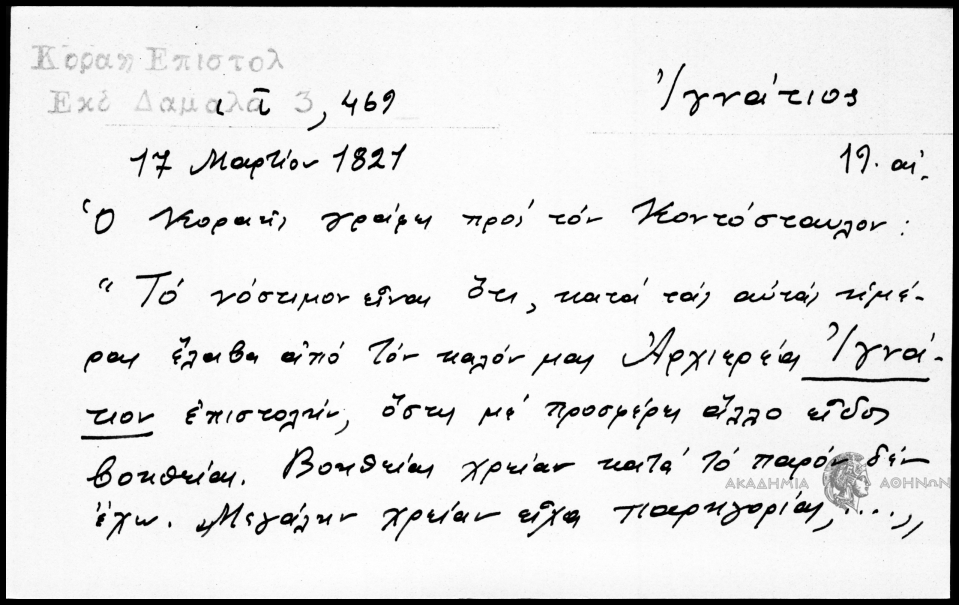 Κοραη Επιστολ
Εκδ Δαμαλα 3, 469
Ἰγνάτιος
17 Μαρτίου 1821
19. αἰ.
Ὁ Κοραῆς γράφει πρός τόν Κοντόσταυλον:
"Τό νόστιμον εἶναι ὅτι, κατά τάς αὐτάς ἡμέ-
ρας ἔλαβα ἀπό τόν καλόν μας Ἀρχιερέα Ἰγνά-
τιον ἐπιστολήν, ὅστις μέ προσφέρει ἄλλο εἶδος
βοηθείας. Βοηθείας χρείαν κατά τό παρόν δέν
ἔχω. Μεγάλην χρείαν εἶχα παρηγορίας, ...,,
ΑΚΑΔΗΜΙΑ ΑΘΗΝΩΝ